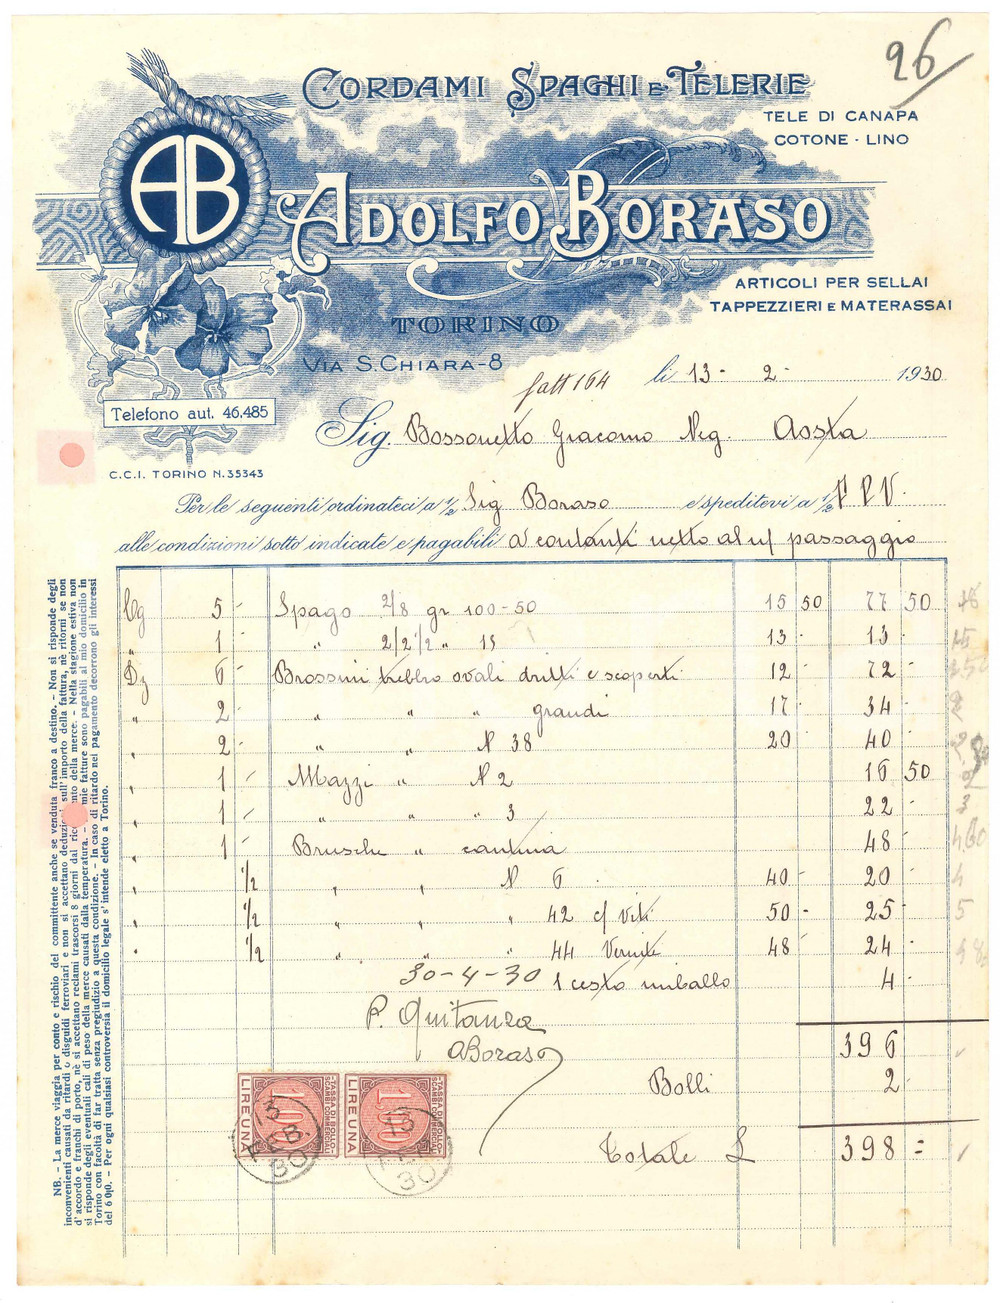 96
CORDAMI SPAGHI E TELERIE
TELE DI CANAPA
COTONE - LINO
AB
ADOLFO BORASO
ARTICOLI PER SELLAI
TAPPEZZIERI E MATERASSAI
TORINO
VIA S. CHIARA - 8
fatt 164 li 13 - 2 - 1930
Telefono aut. 46.485
Sig. Bossonetto Giacomo Neg. Aosta
C.C.I. TORINO N. 35343
Per le seguenti ordinateci a ½ Sig Boraso e speditevi a ½ P P V.
alle condizioni sotto indicate e pagabili a contanti netto al n/ passaggio
Cg 5 - Spago 2/8 gr 100-50 15 50 77 50
" 1 - " 2/2 ½ " 15 13 - 13 -
Dz 6 Brossini trebbro ovali dritti e scoperti 12 - 72 -
" 2 - " " " grandi 17 - 34 -
" 2 - " " N 38 20 - 40 -
" 1 - Mazzi " N 2 16 50
" 1 - " " " 3 22 -
" 1 - Brusche " cantina 48 -
" ½ " " N 6 40 - 20 -
" ½ " " " 42 c/ Viti 50 - 25 -
" ½ " " " 44 Vernite 48 - 24 -
30-4-30 1 cesto imballo 4 -
P. Quitanza
ABoraso
396
Bolli 2 -
Totale L 398 =
TASSA DI BOLLO
SUGLI SCAMBI COMMERCIALI
1,00
LIRE UNA
TASSA DI BOLLO
SUGLI SCAMBI COMMERCIALI
1,00
LIRE UNA
13 FEB. 30
13 FEB. 30
NB. - La merce viaggia per conto e rischio del committente anche se venduta franco a destino. - Non si risponde degli
inconvenienti causati da ritardi o disguidi ferroviari e non si accettano deduzioni sull'importo della fattura, nè ritorni se non
d'accordo e franchi di porto, nè si accettano reclami trascorsi 8 giorni dal ricevimento della merce. - Nella stagione estiva non
si risponde degli eventuali cali di peso della merce causati dalla temperatura. - Le mie fatture sono pagabili al mio domicilio in
Torino con facoltà di far tratta senza pregiudizio a questa condizione. - In caso di ritardo nel pagamento decorrono gli interessi
del 6 0|0. - Per ogni qualsiasi controversia il domicilio legale s'intende eletto a Torino.